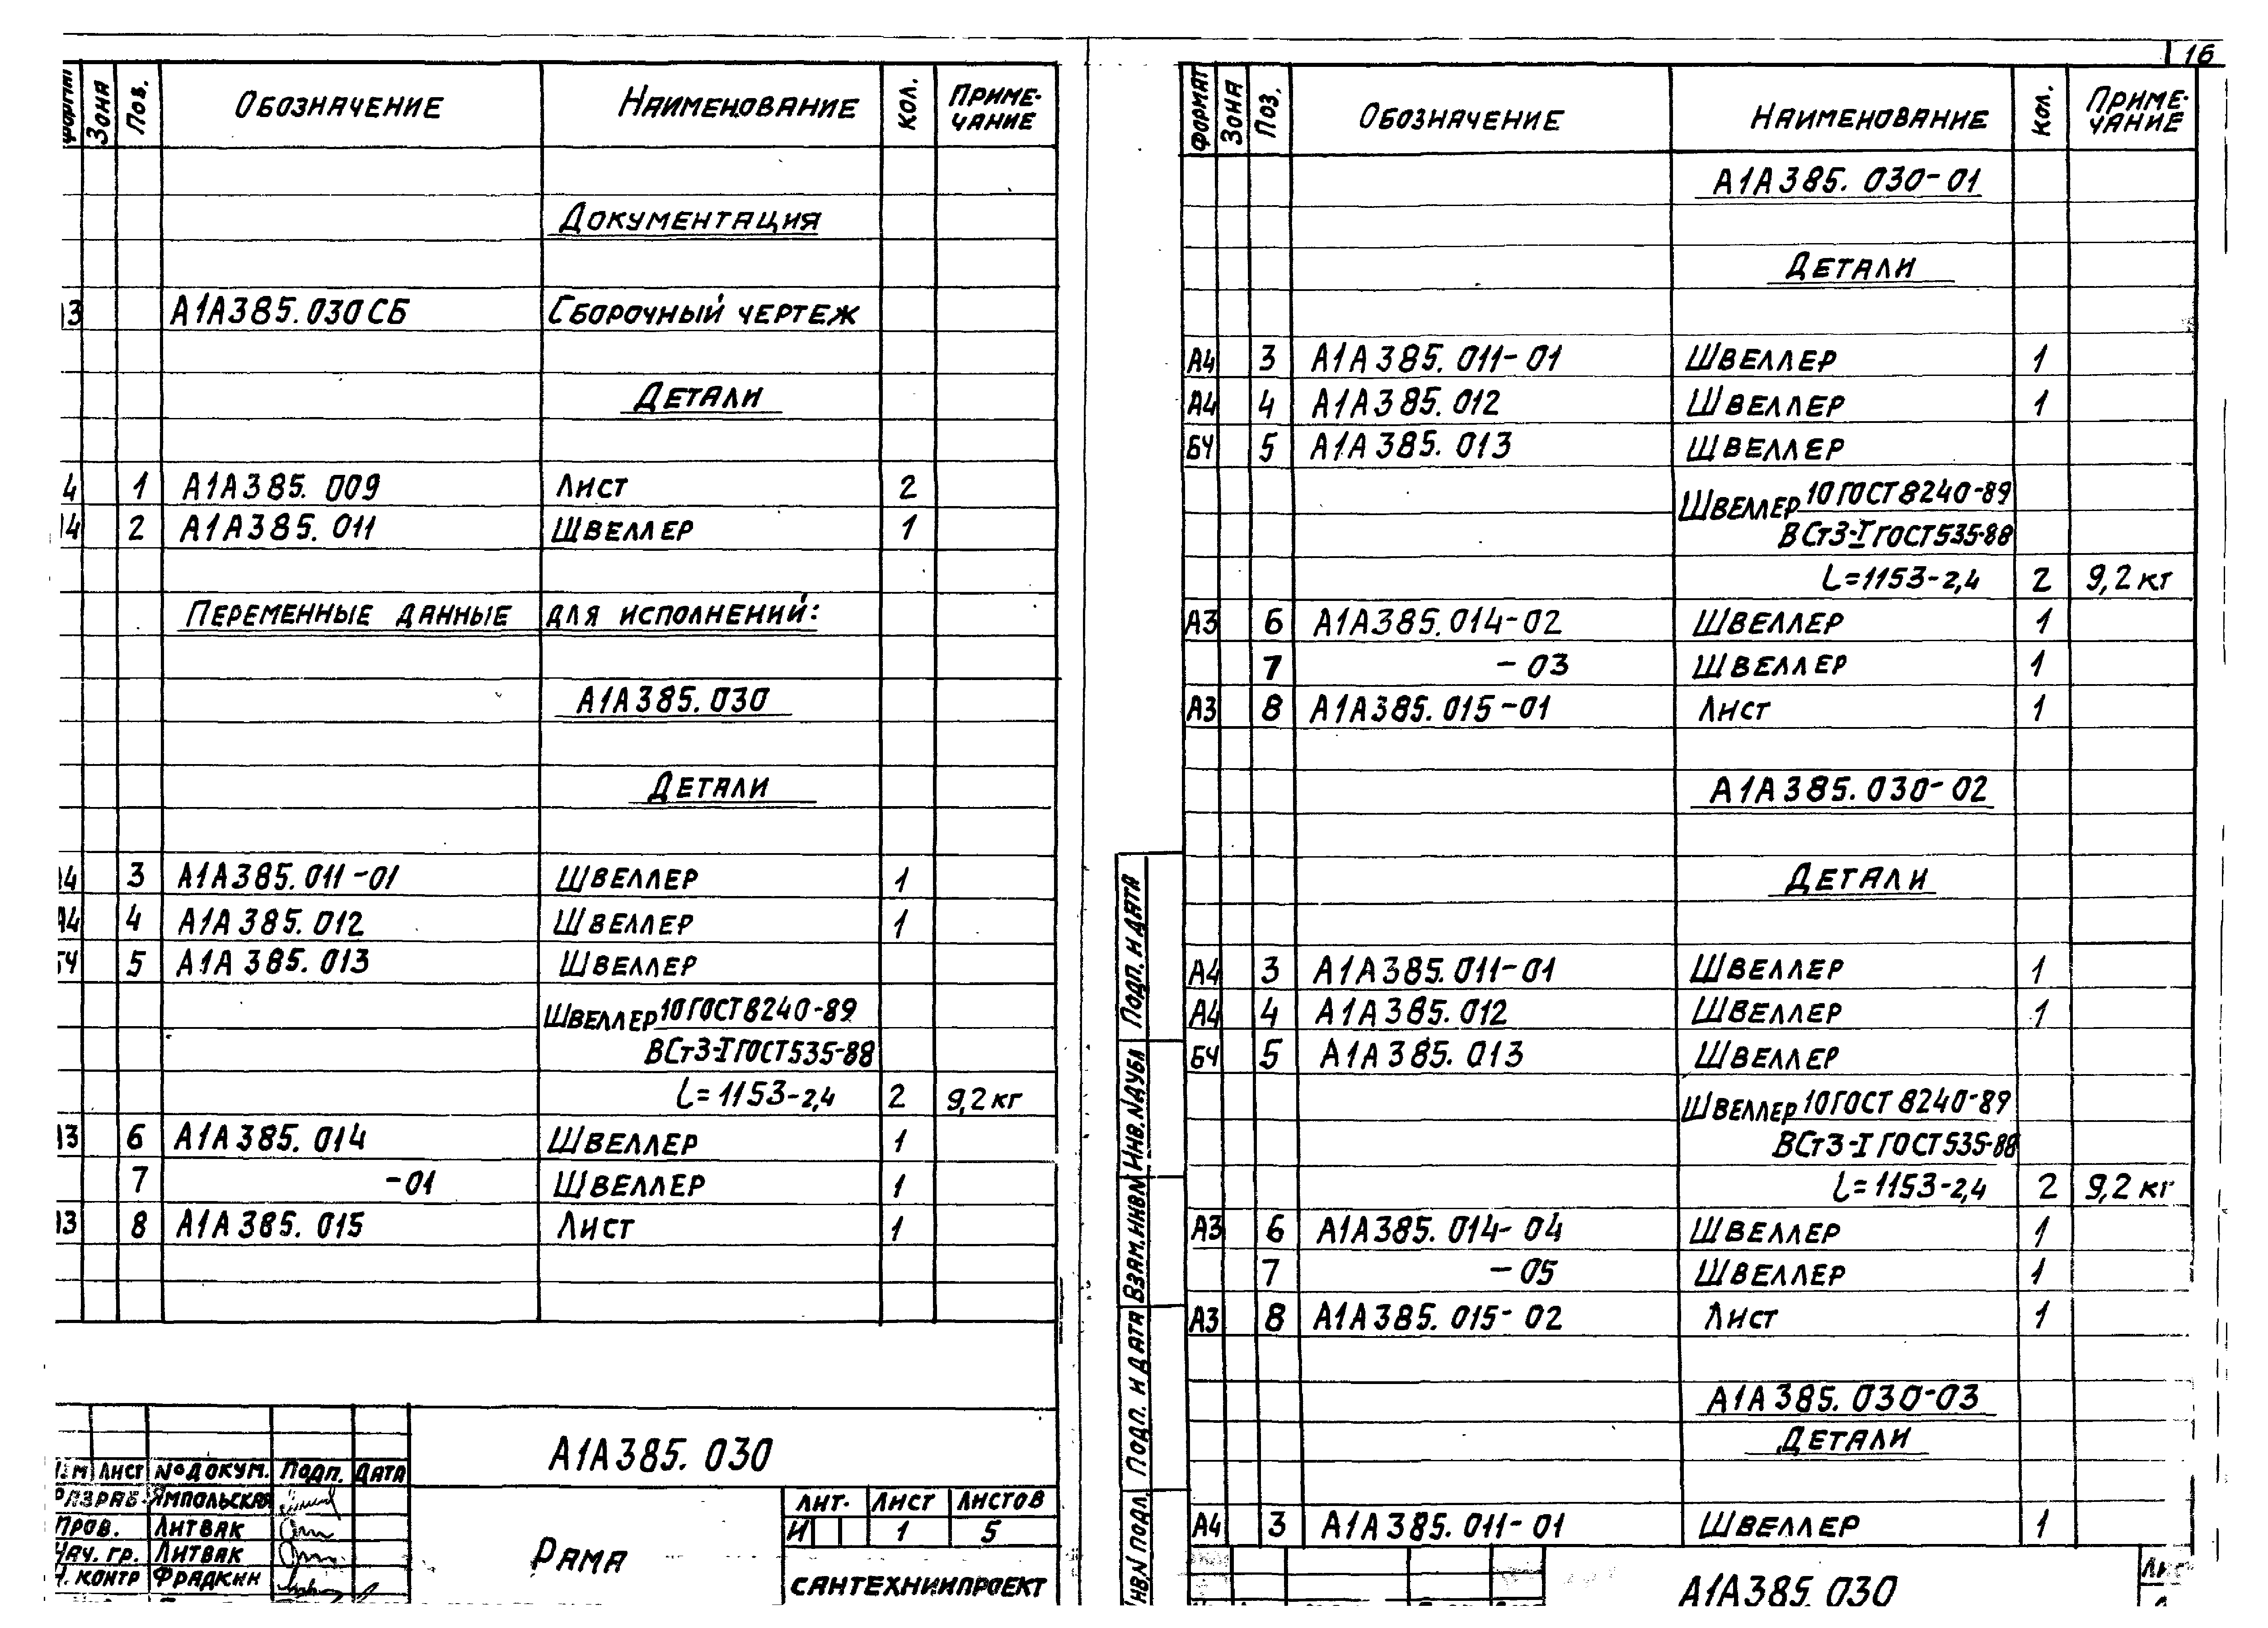 16
Формат Зона Поз. Обозначение Наименование Кол. Приме-
чание
Документация
А1А385.030СБ Сборочный чертеж
Детали
1 А1А385.009 Лист 2
2 А1А385.011 Швеллер 1
Переменные данные для исполнений:
А1А385.030
Детали
А4 3 А1А385.011-01 Швеллер 1
А4 4 А1А385.012 Швеллер 1
БЧ 5 А1А385.013 Швеллер
Швеллер 10 ГОСТ 8240-89
ВСт3-I ГОСТ 535-88
L=1153-2,4 2 9,2 кг
А3 6 А1А385.014 Швеллер 1
7 -01 Швеллер 1
А3 8 А1А385.015 Лист 1
А1А385.030
Изм Лист № докум. Подп. Дата
Разраб. Ямпольская
Пров. Литвак
Нач. гр. Литвак
Н. контр Фрадкин
Рама
Лит. Лист Листов
И 1 5
Сантехниипроект
Формат Зона Поз. Обозначение Наименование Кол. Приме-
чание
А1А385.030-01
Детали
А4 3 А1А385.011-01 Швеллер 1
А4 4 А1А385.012 Швеллер 1
БЧ 5 А1А385.013 Швеллер
Швеллер 10 ГОСТ 8240-89
ВСт3-I ГОСТ 535-88
L=1153-2,4 2 9,2 кг
А3 6 А1А385.014-02 Швеллер 1
7 -03 Швеллер 1
А3 8 А1А385.015-01 Лист 1
А1А385.030-02
Детали
А4 3 А1А385.011-01 Швеллер 1
А4 4 А1А385.012 Швеллер 1
БЧ 5 А1А385.013 Швеллер
Швеллер 10 ГОСТ 8240-89
ВСт3-I ГОСТ 535-88
L=1153-2,4 2 9,2 кг
А3 6 А1А385.014-04 Швеллер 1
7 -05 Швеллер 1
А3 8 А1А385.015-02 Лист 1
А1А385.030-03
Детали
А4 3 А1А385.011-01 Швеллер 1
А1А385.030
Инв.N подл. Подп. и дата Взам.инв N Инв.N дубл Подп. и дата